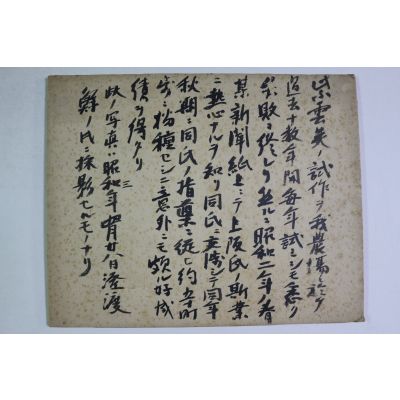 紫雲英ノ試作ヲ我農場ニ於テ
過去十数年間毎年試ミシモ悉ク
失敗ニ終レリ然ルニ昭和二年ノ春
某新聞紙上ニテ上阪氏斯業
ニ熱心ナルヲ知リ同氏ニ交渉シテ同年
秋期ニ同氏ノ指葉ニ従ヒ約五十町
歩ニ播種セシニ意外ニモ頗ル好成
績ヲ得タリ
此ノ写真ハ昭和三年四月廿八日澄渡
鮮ノ氏ニ採影セルモノナリ